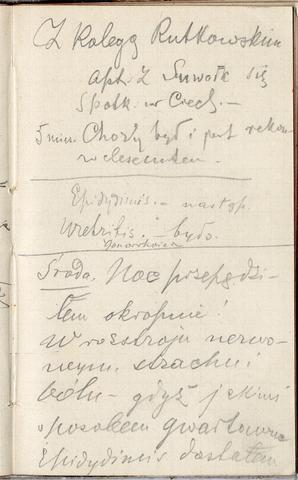 Z Kolegą Rutkowskim
apt. z Suwałk się
spotk. w Ciech. —
5 min. Chory był i jest rekon-
walescentem. —
Epididimis. — nastąp.
Uretritis. — było.
Gonorrhoica
Środa. Noc przepędzi-
łem okropnie!
W rozstroju nerwo-
wym, strachu i
bólu — gdyż jakimś
sposobem gwałtowne
Epidydimis dostałem